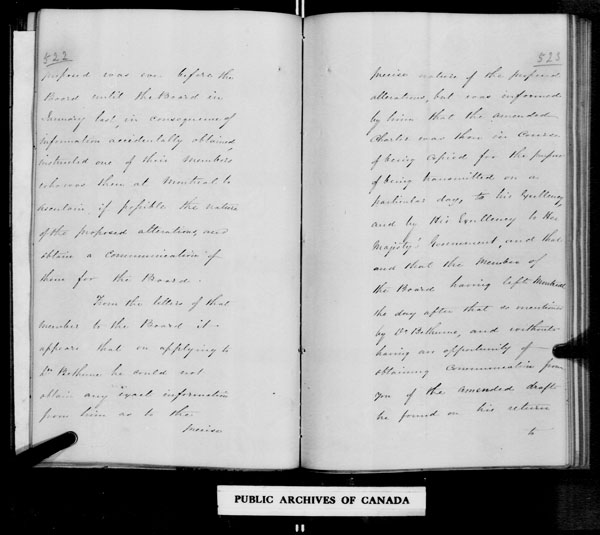 522
proposed was ever before the
Board until the Board in
January last, in consequence of
information accidentally obtained
instructed one of their Members
who was then at Montreal to
ascertain if possible the nature
of the proposed alterations, and
obtain a communication of
them for the Board.
From the letters of that
member to the Board it
appears that on applying to
Dr Bethune he could not
obtain any exact information
from him as to the
precise
523
precise nature of the proposed
alterations, but was informed
by him that the amended
Charter was then in course
of being copied for the purpose
of being transmitted on a
particular day, to his Excellency
and by His Excellency to Her
Majesty's Government, and that
and that the Member of
the Board having left Montreal
the day after that so mentioned
by Dr Bethune, and without
having an opportunity of
obtaining communication from
you of the amended draft
he found on his return
to
PUBLIC ARCHIVES OF CANADA